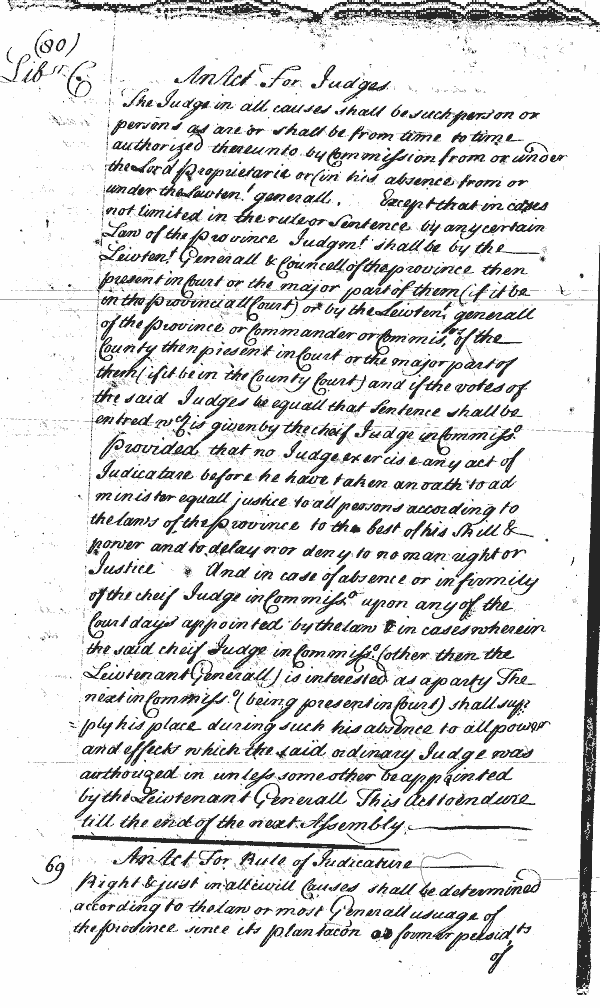 (80)
Libr C.
An Act For Judges
The Judge in all causes shall be such person or
persons as are or shall be from time to time
authorized thereunto by Commission from or under
the Lord Proprietarie or (in his absence from or
under the Lewten.t generall. Except that in cases
not limited in the rule or Sentence by any certain
Law of the Province Judgm.t shall be by the
Leiwten.t Generall & Councell of the province then
present in Court or the major part of them (if it be
in the Provinciall Court) or by the Lewten.t generall
of the Province or Commander or Commiss.or of the
County then present in Court or the major part of
them (if it be in the County Court) and if the votes of
the said Judges be equall that Sentence shall be
entred wch is given by the cheif Judge in Commiss.o
Provided that no Judge exercise any act of
Judicature before he have taken an oath to ad
minister equall justice to all persons according to
the laws of the province to the best of his Skill &
power and to delay nor deny to no man right or
Justice And in case of absence or infirmity
of the cheif Judge in Commiss.o upon any of the
Court days appointed by the law & in cases wherein
the said cheif Judge in Commiss.o (other then the
Leiwtenant Generall) is interested as a party The
next in Commiss.o (being present in Court) shall sup
=ply his place during such his absence to all power
and effects which the said ordinary Judge was
authorized in unless some other be appointed
by the Leiwtenant Generall This Act to endure
till the end of the next Assembly
69
An Act For Rule of Judicature
Right & just in all civill Causes shall be determined
according to the law or most Generall usuage of
the province since its plantacon or former presid.ts
of